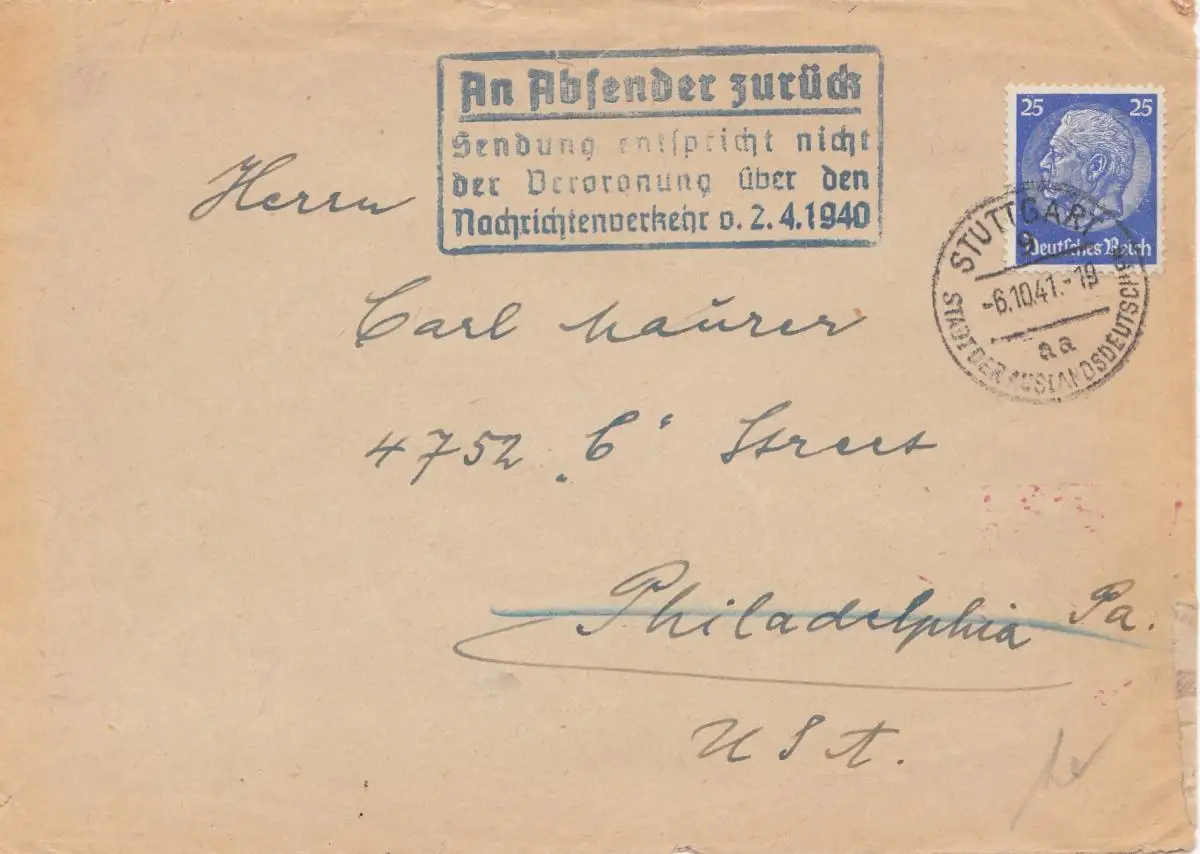 An Absender zurück
Sendung entspricht nicht
der Verordnung über den
Nachrichtenverkehr v. 2.4.1940
25 25
Deutsches Reich
STUTTGART
9
-6.10.41.-19
aa
STADT DER AUSLANDSDEUTSCHEN
Herrn
Carl Maurer
4752 „C“ Street
Philadelphia Pa.
USA.